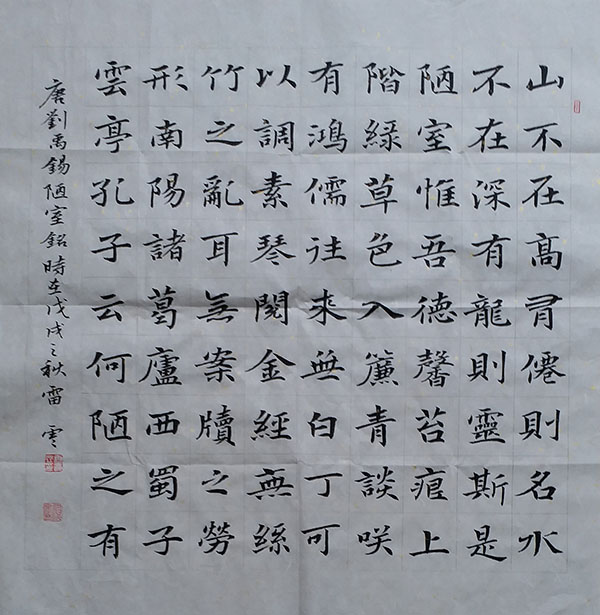 山不在高有僊則名水
不在深有龍則靈斯是
陋室惟吾德馨苔痕上
階綠草色入簾青談咲
有鴻儒往来無白丁可
以調素琴閱金經無絲
竹之亂耳無案牘之勞
形南陽諸葛廬西蜀子
雲亭孔子云何陋之有
唐劉禹錫陋室銘時在戊戌之秋雷